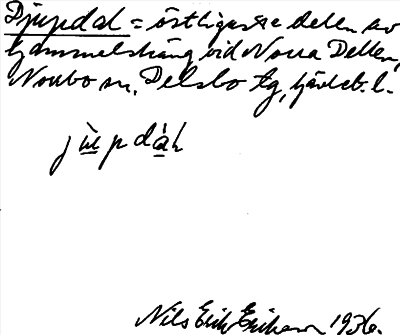 Djupdal = östligaste delen av
hammelstäng vid Norra Dellen,
Norrbo sn, Delsbo tg, Gävleb. l.
jùpdàl
Nils Erik Eriksson 1936.